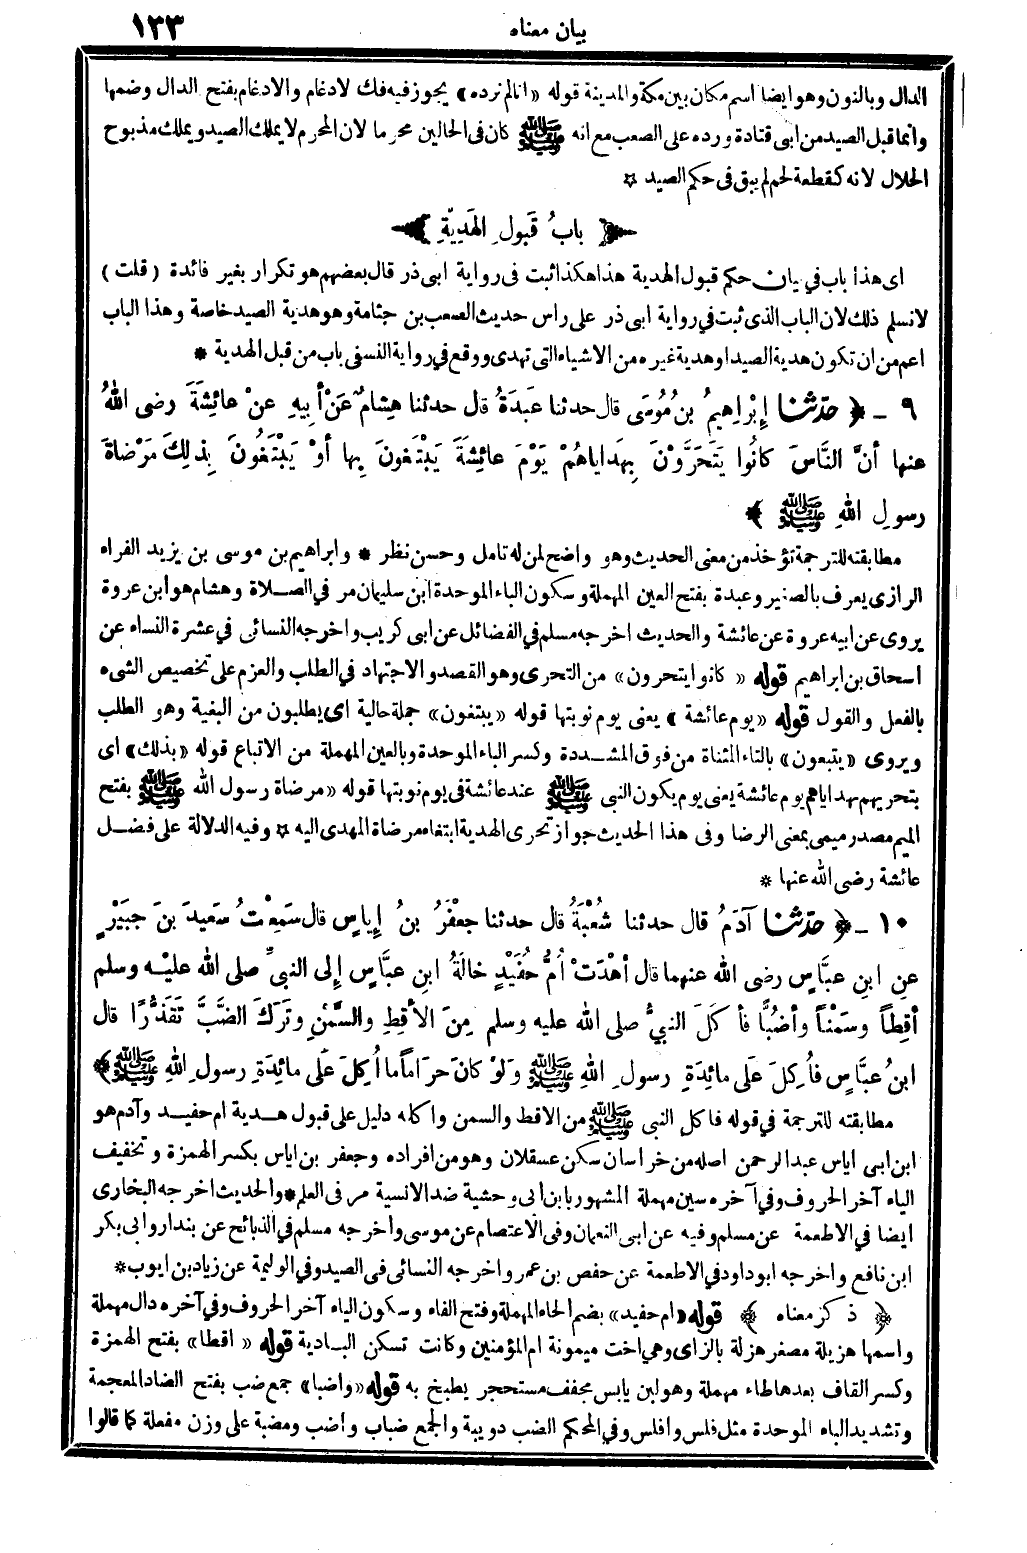 بيان معناه
١٣٣
الدال وبالنون وهو ايضا اسم مكان بين مكة والمدينة قوله «انالم نرده» يجوز فيه فك لادغام والادغام بفتح الدال وضمها
وانما قبل الصيد من ابى قتادة ورده على الصعب مع انه ﷺ كان فى الحالين محرما لان المحرم لا يملك الصيد ويملك مذبوح
الحلال لانه كقطعة لحم لم يبق فى حكم الصيد ☆
﴿ بابُ قَبولِ الهَديّةِ ﴾
اى هذا باب في بيان حكم قبول الهدية هذا هكذا ثبت فى رواية ابى ذر قال بعضهم هو تكرار بغير فائدة (قلت)
لانسلم ذلك لان الباب الذى ثبت في رواية ابى ذر على راس حديث الصعب بن جثامة وهو هدية الصيد خاصة وهذا الباب
اعم من ان تكون هدية الصيد اوهدية غيره من الاشياء التى تهدى ووقع في رواية النسفى باب من قبل الهدية *
٩ ـ ﴿ حدّثنا إبْراهيمُ بن مُوسَى قال حدثنا عَبدَةُ قل حدثنا هِشامٌ عَنْ أبِيهِ عنْ عائِشَةَ رضى اللهُ
عنها أنَّ النَّاسَ كانُوا يَتَحَرَّوْنَ بِهَداياهُمْ يَوْمَ عائِشَةَ يَبْتَغونَ بِها أوْ يَبْتَغُونَ بِذلِكَ مَرْضاةَ
رسولِ اللهِ ﷺ ﴾
مطابقته للترجمة تؤخذ من معنى الحديث وهو واضح لمن له تامل وحسن نظر * وابراهيم بن موسى بن يزيد الفراء
الرازى يعرف بالصغير وعبدة بفتح العين المهملة وسكون الباء الموحدة ابن سليمان مر في الصلاة وهشام هو ابن عروة
يروى عن ابيه عروة عن عائشة والحديث اخرجه مسلم فى الفضائل عن ابى كريب واخرجه النسائى في عشرة النساء عن
اسحاق بن ابراهيم قوله « كانوا يتحرون» من التحرى وهو القصد والاجتهاد في الطلب والعزم على تخصيص الشىء
بالفعل والقول قوله «يوم عائشة» يعنى يوم نوبتها قوله «يبتغون» جملة حالية اى يطلبون من البغية وهو الطلب
ويروى «يتبعون» بالتاء المثناة من فوق المشددة وكسر الباء الموحدة وبالعين المهملة من الاتباع قوله «بذلك» اى
بتحريهم بهداياهم يوم عائشة يعنى يوم يكون النبى ﷺ عند عائشة فى يوم نوبتها قوله «مرضاة رسول الله ﷺ بفتح
الميم مصدر ميمى بمعنى الرضا وفى هذا الحديث جواز تحرى الهدية ابتغاء مرضاة المهدى اليه ☆ وفيه الدلالة على فضل
عائشة رضى الله عنها *
١٠ ـ ﴿ حدّثنا آدَمُ قال حدثنا شُعْبَةُ قل حدثنا جعْفَرُ بنُ إياسٍ قال سَمِعْتُ سَعيدَ بنَ جبَيْرٍ
عنِ ابنِ عبَّاسٍ رضى الله عنهما قال أهْدَتْ أمُّ حُفَيْدٍ خالَةُ ابنِ عبَّاسٍ إلى النبيِّ صلى الله عليه وسلم
أقِطاً وسَمْناً وأضُبًّا فأكَلَ النبيُّ صلى الله عليه وسلم مِنَ الأقِطِ والسَّمْنِ وتَرَكَ الضَّبَّ تَقَذُّرًا قال
ابنُ عبَّاسٍ فأُكِلَ عَلَى مائِدَةِ رسولِ اللهِ ﷺ ولَوْ كانَ حرَاماً ما أُكِلَ علَى مائِدَةِ رسولِ اللهِ ﷺ ﴾
مطابقته للترجمة في قوله فاكل النبى ﷺ من الاقط والسمن واكله دليل على قبول هدية ام حفيد وآدم هو
ابن ابى اياس عبد الرحمن اصله من خراسان سكن عسقلان وهو من افراده وجعفر بن اياس بكسر الهمزة وتخفيف
الياء آخر الحروف وفي آخره سين مهملة المشهور بابن ابى وحشية ضد الانسية مر فى العلم * والحديث اخرجه البخارى
ايضا في الاطعمة عن مسلم وفيه عن ابى النعمان وفى الاعتصام عن موسى واخرجه مسلم في الذبائح عن بندار وابى بكر
ابن نافع واخرجه ابو داود في الاطعمة عن حفص بن عمر واخرجه النسائى فى الصيد وفي الوليمة عن زياد بن ايوب *
﴿ ذكر معناه ﴾ قوله «ام حفيد» بضم الحاء المهملة وفتح الفاء وسكون الياء آخر الحروف وفي آخره دال مهملة
واسمها هزيلة مصغر هزلة بالزاى وهي اخت ميمونة ام المؤمنين وكانت تسكن البادية قوله « اقطا» بفتح الهمزة
وكسر القاف بعدها طاء مهملة وهو لبن يابس مجفف مستحجر يطبخ به قوله «واضبا» جمع ضب بفتح الضاد المعجمة
وتشديد الباء الموحدة مثل فلس وافلس وفي المحكم الضب دويبة والجمع ضباب واضب ومضبة على وزن مفعلة كما قالوا